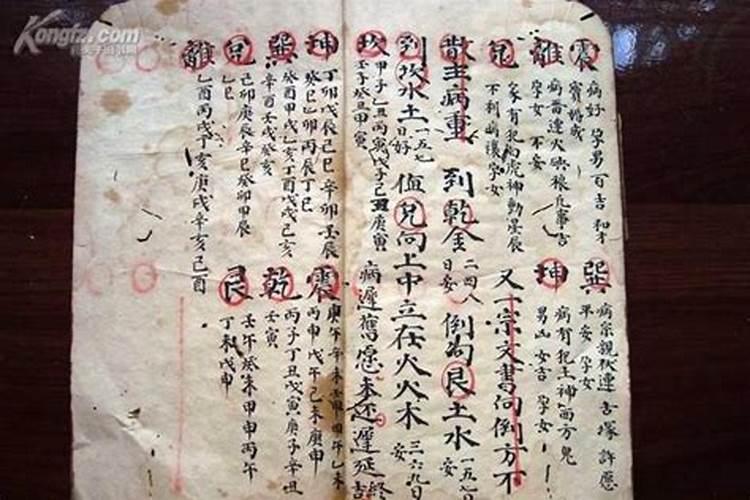 震
病好 孕男百吉 和才
宾婚成
離
病苗連火 吉
孕女 不安
兑
家有犯白虎神動星辰
不利 孕女
巽
病宗親伏連 古塚許愿
平安 孕女
坤
病有犯土神西方鬼
男凶女吉 孕女
又一宗文書向倒方不
散主病重 到乾金 二四八日安 倒向艮土水 一五七日安
到坎水土 一五七日好 值兑向上中立在火火木 三六九日安
病遲舊愿未还遲延吉
坎
甲子乙丑丙寅戊子己丑庚寅
壬子癸丑甲寅
坤
丁卯戊辰己巳辛卯壬辰
癸巳乙卯丙辰丁巳
震
庚午辛未壬申甲午乙未
丙申戊午己未庚申
巽
癸酉甲戌乙亥丁酉戊戌己亥
辛酉壬戌癸亥
乾
丙子丁丑戊寅庚子辛
壬寅
兑
己卯庚辰辛巳癸卯甲辰
乙巳
艮
壬午癸未甲申丙午
丁未戊申
離
乙酉丙戌丁亥庚戌辛亥己酉
Kongfz.com